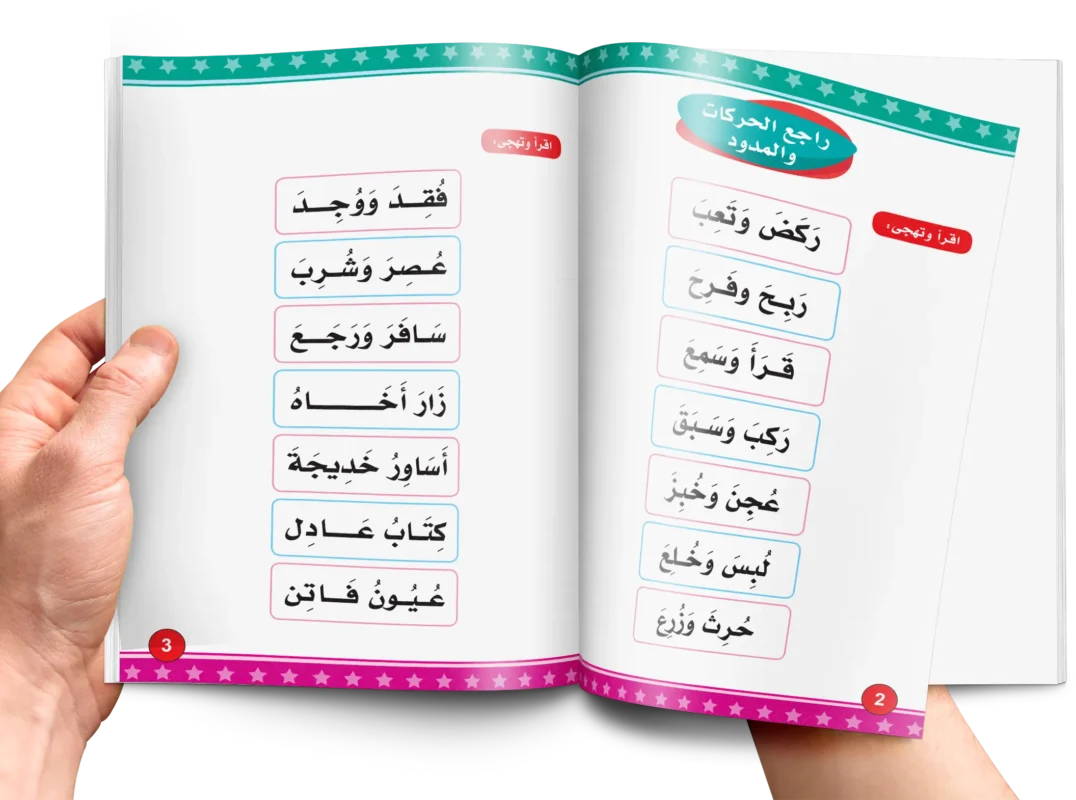 راجع الحركات
والمدود
اقرأ وتهجى:
رَكَضَ وَتَعِبَ
رَبِحَ وفَرِحَ
قَرَأَ وَسَمِعَ
رَكِبَ وَسَبَقَ
عُجِنَ وَخُبِزَ
لُبِسَ وَخُلِعَ
حُرِثَ وَزُرِعَ
2
اقرأ وتهجى:
فُقِـدَ وَوُجِـدَ
عُـصِرَ وَشُـرِبَ
سَـافَرَ وَرَجَـعَ
زَارَ أَخَـــــاهُ
أَسَاوِرُ خَدِيجَةَ
كِتَـابُ عَـــادِل
عُـيُـونُ فَـاتِـن
3